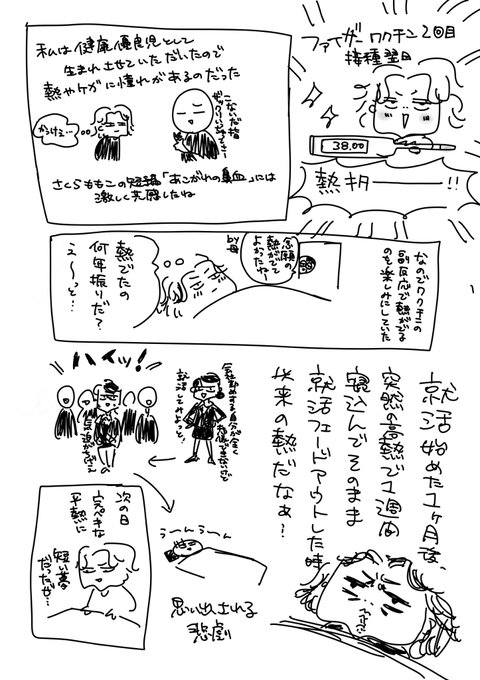 ファイザーワクチン2回目
接種翌日
38.00
熱キター――!!
私は健康優良児として
生まれさせていただいたので
熱やケガに憧れがあるのだった
かっけぇ…
こないだ指
さくらももこの短編「あこがれの鼻血」には
激しく共感したね
なのでワクチンの
副反応で熱がでる
のも楽しみにしていた
念願の
熱がでて
よかったや
by母
熱でたの
何年振りだ?
え〜っと…
就活始めた1ヶ月後、
突然の高熱で1週間
寝込んでそのまま
就活フェードアウトした時
以来の熱だなぁ?
ハイッ!
うーんうーん
思い出される
悲劇
次の日
完ぺきな
平熱に
短い夢
だったぜ…